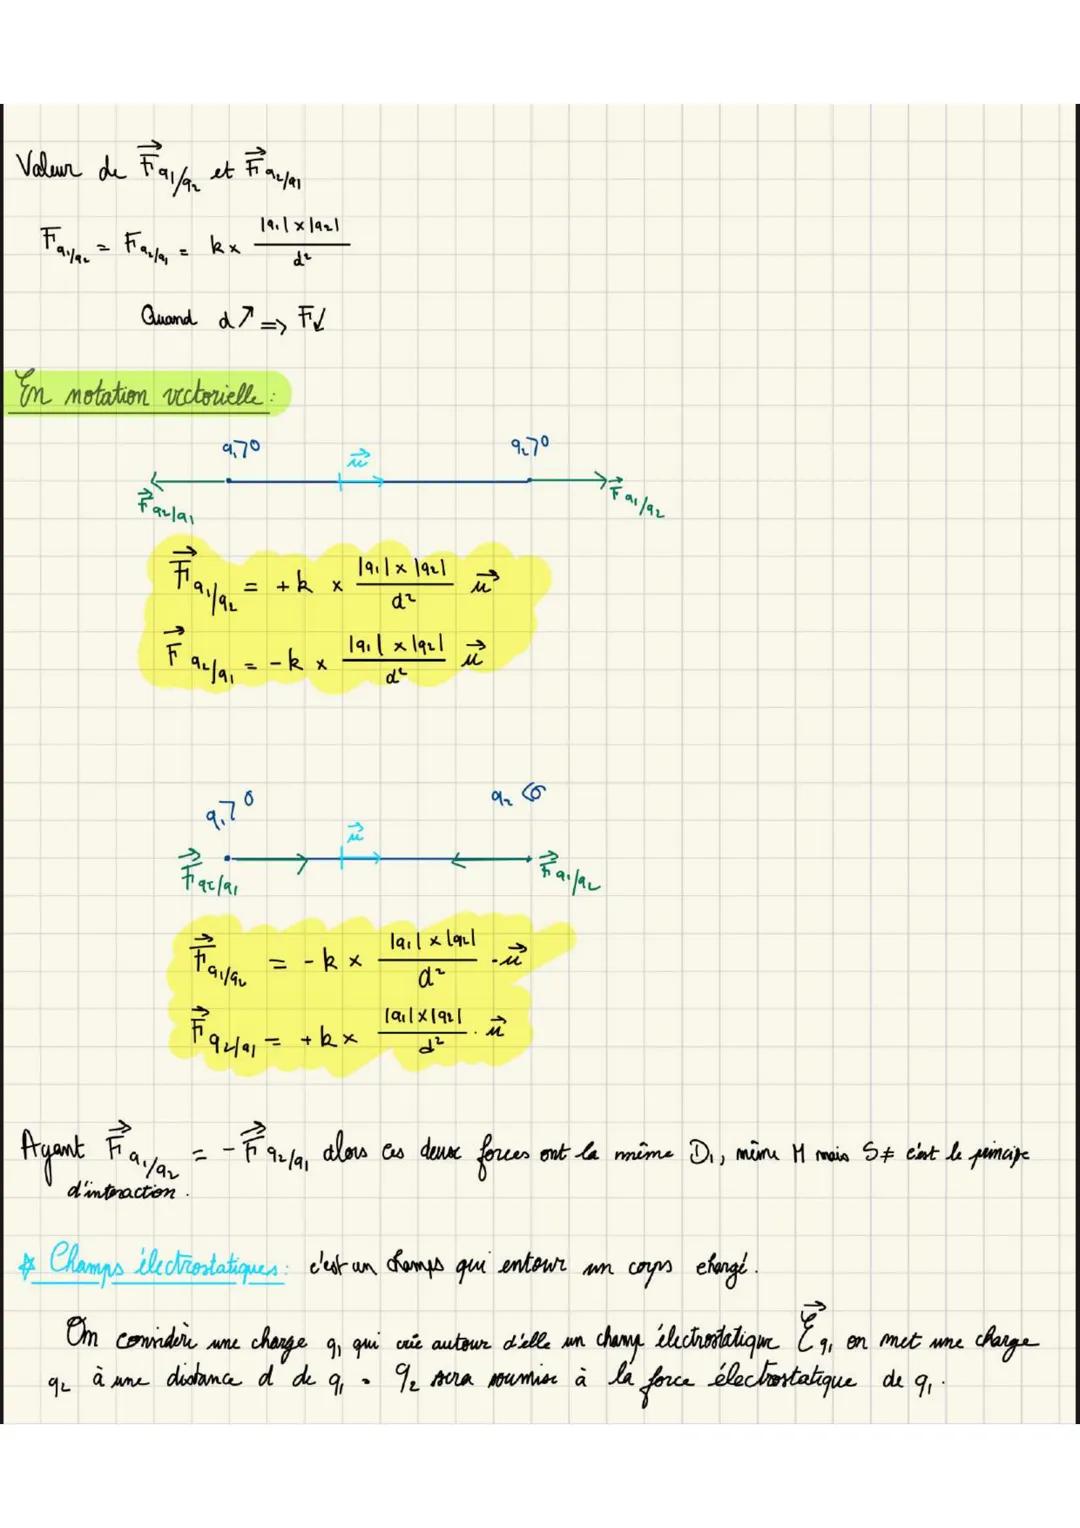 Valeur de F⃗ q1/q2 et F⃗ q2/q1
F q1/q2 = F q2/q1 = k × |q1| × |q2| / d²
Quand d ↗ => F ↙
En notation vectorielle :
q1 > 0 u⃗ q2 > 0
F⃗ q2/q1 F⃗ q1/q2
F⃗ q1/q2 = + k × |q1| × |q2| / d² u⃗
F⃗ q2/q1 = - k × |q1| × |q2| / d² u⃗
q1 > 0 u⃗ q2 < 0
F⃗ q2/q1 F⃗ q1/q2
F⃗ q1/q2 = - k × |q1| × |q2| / d² · u⃗
F⃗ q2/q1 = + k × |q1| × |q2| / d² · u⃗
Ayant F⃗ q1/q2 = - F⃗ q2/q1 alors ces deux forces ont la même D1, même M mais S ≠ c'est le principe
d'interaction.
* Champs électrostatiques : c'est un champs qui entour un corps chargé.
On considère une charge q1 qui crée autour d'elle un champ électrostatique E⃗ q1 on met une charge
q2 à une distance d de q1. q2 sera soumise à la force électrostatique de q1.